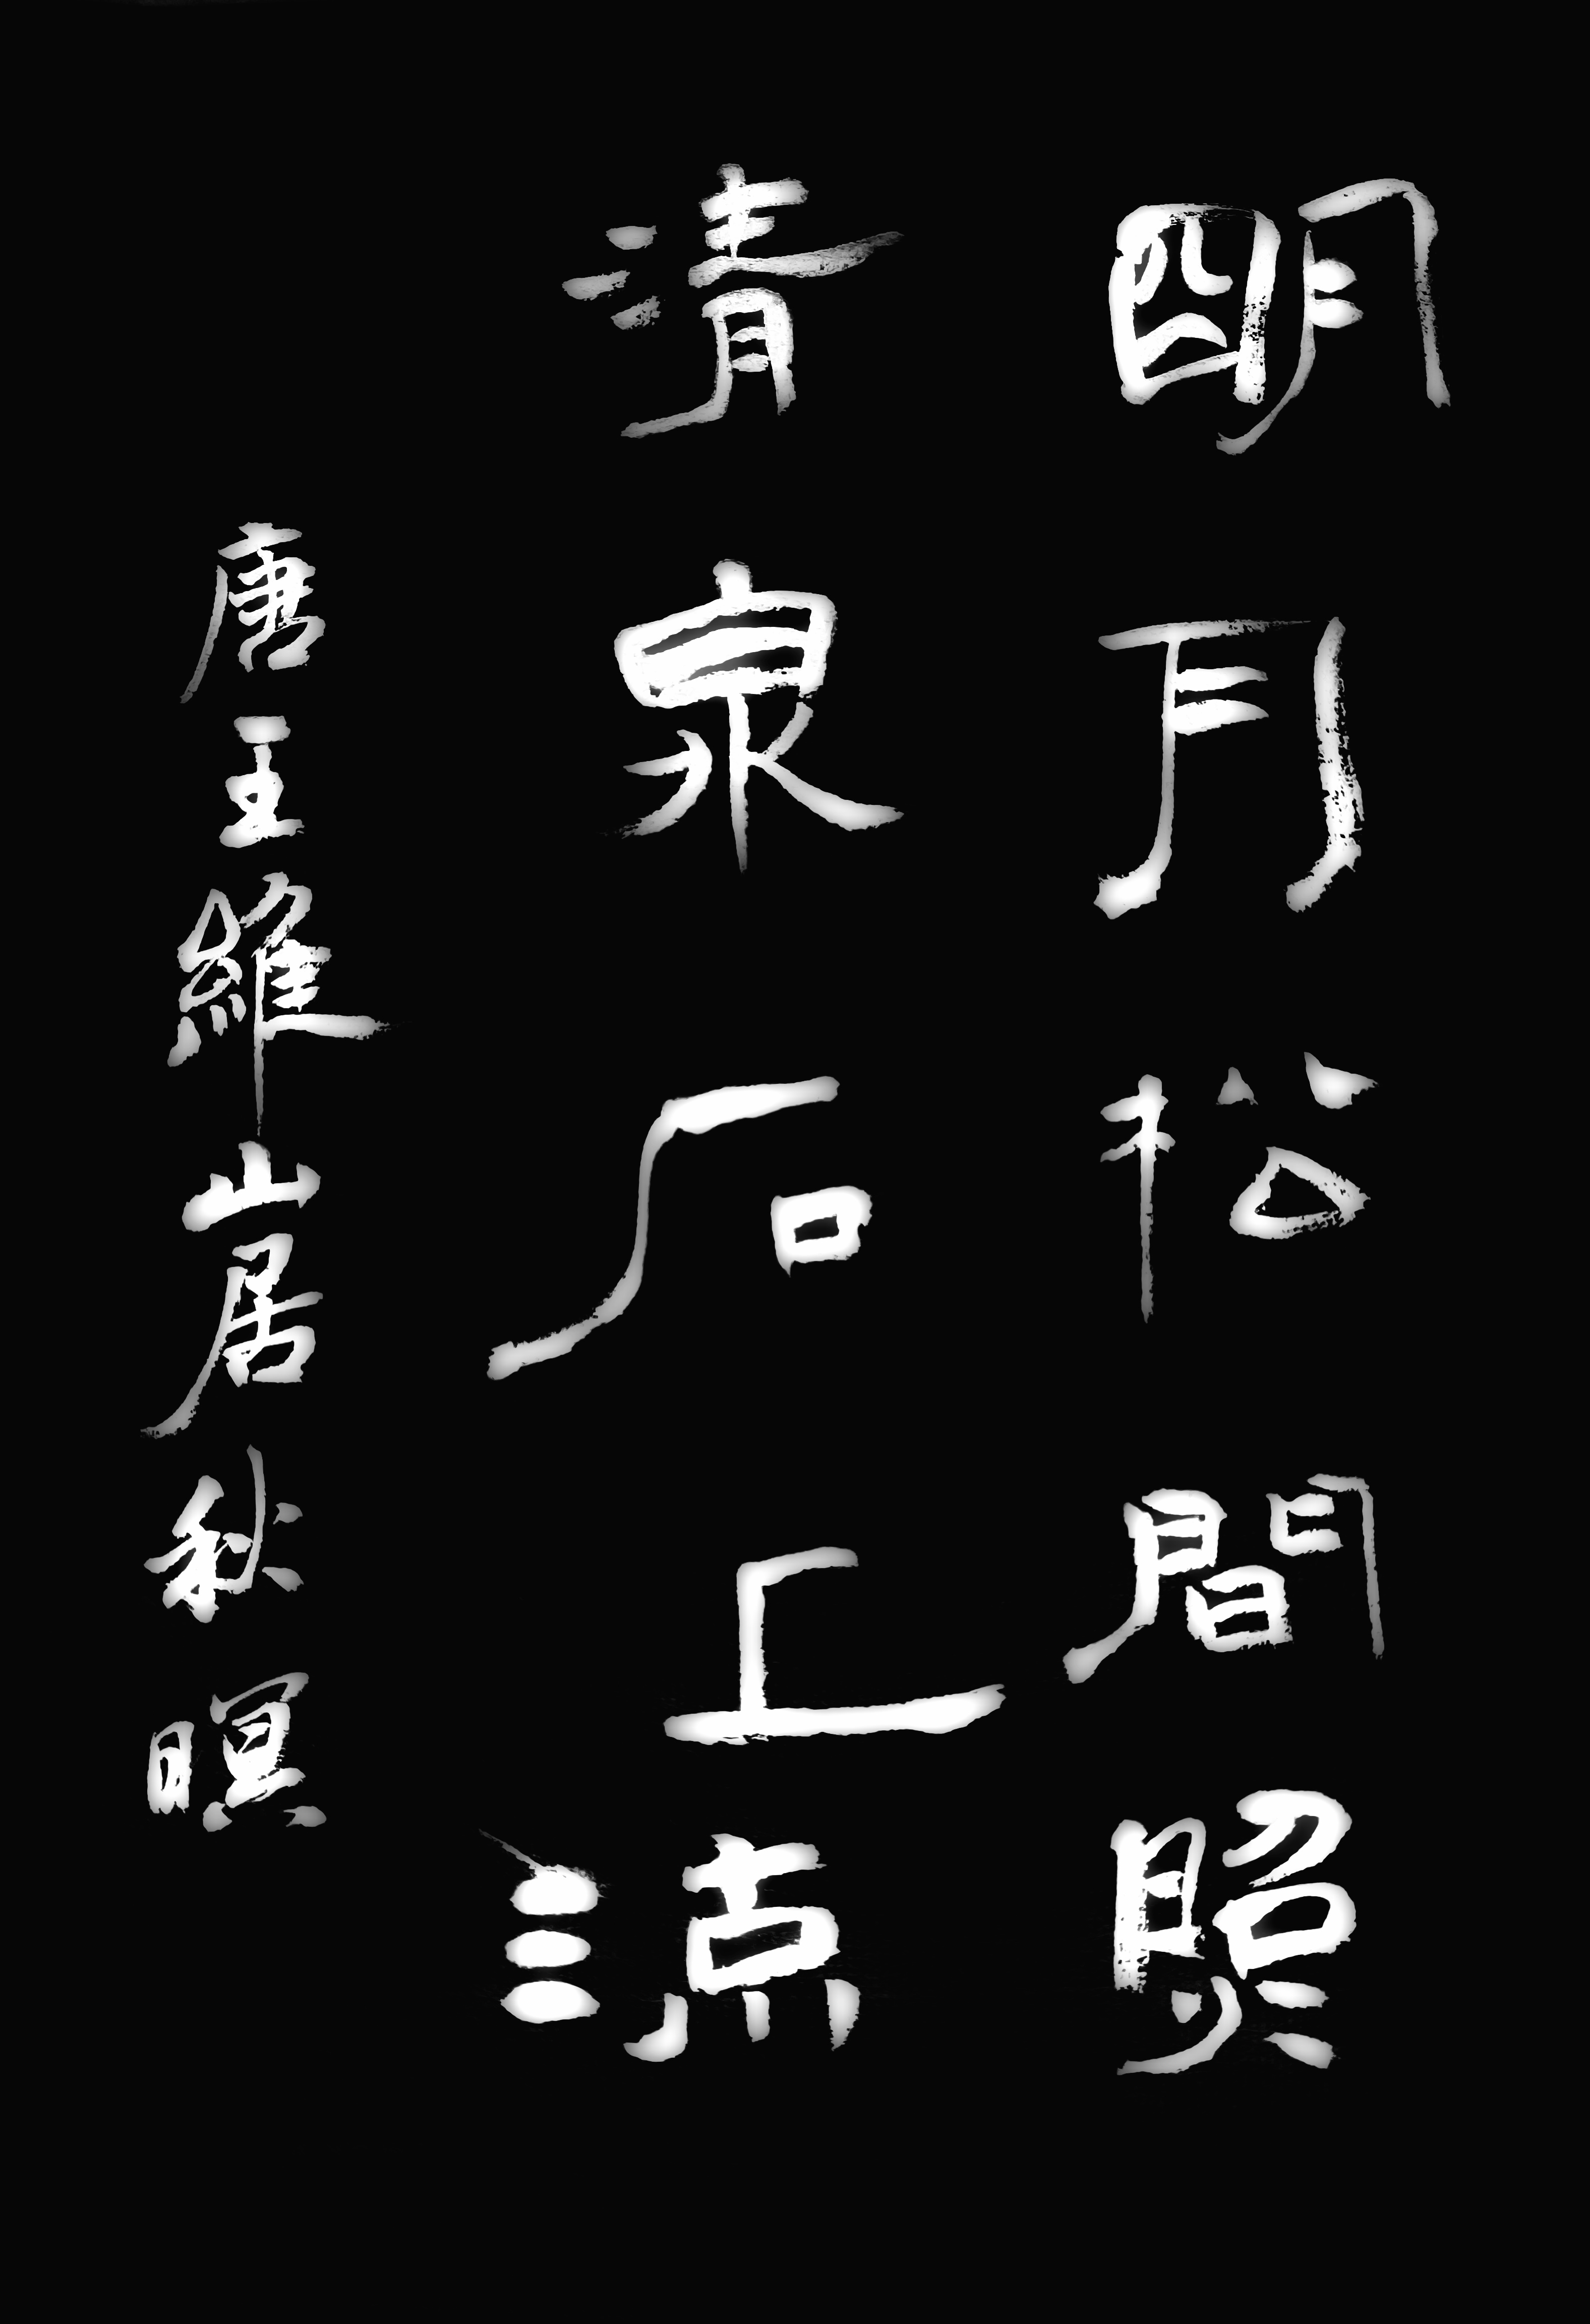 明月松間照
清泉石上流
唐王維山居秋暝